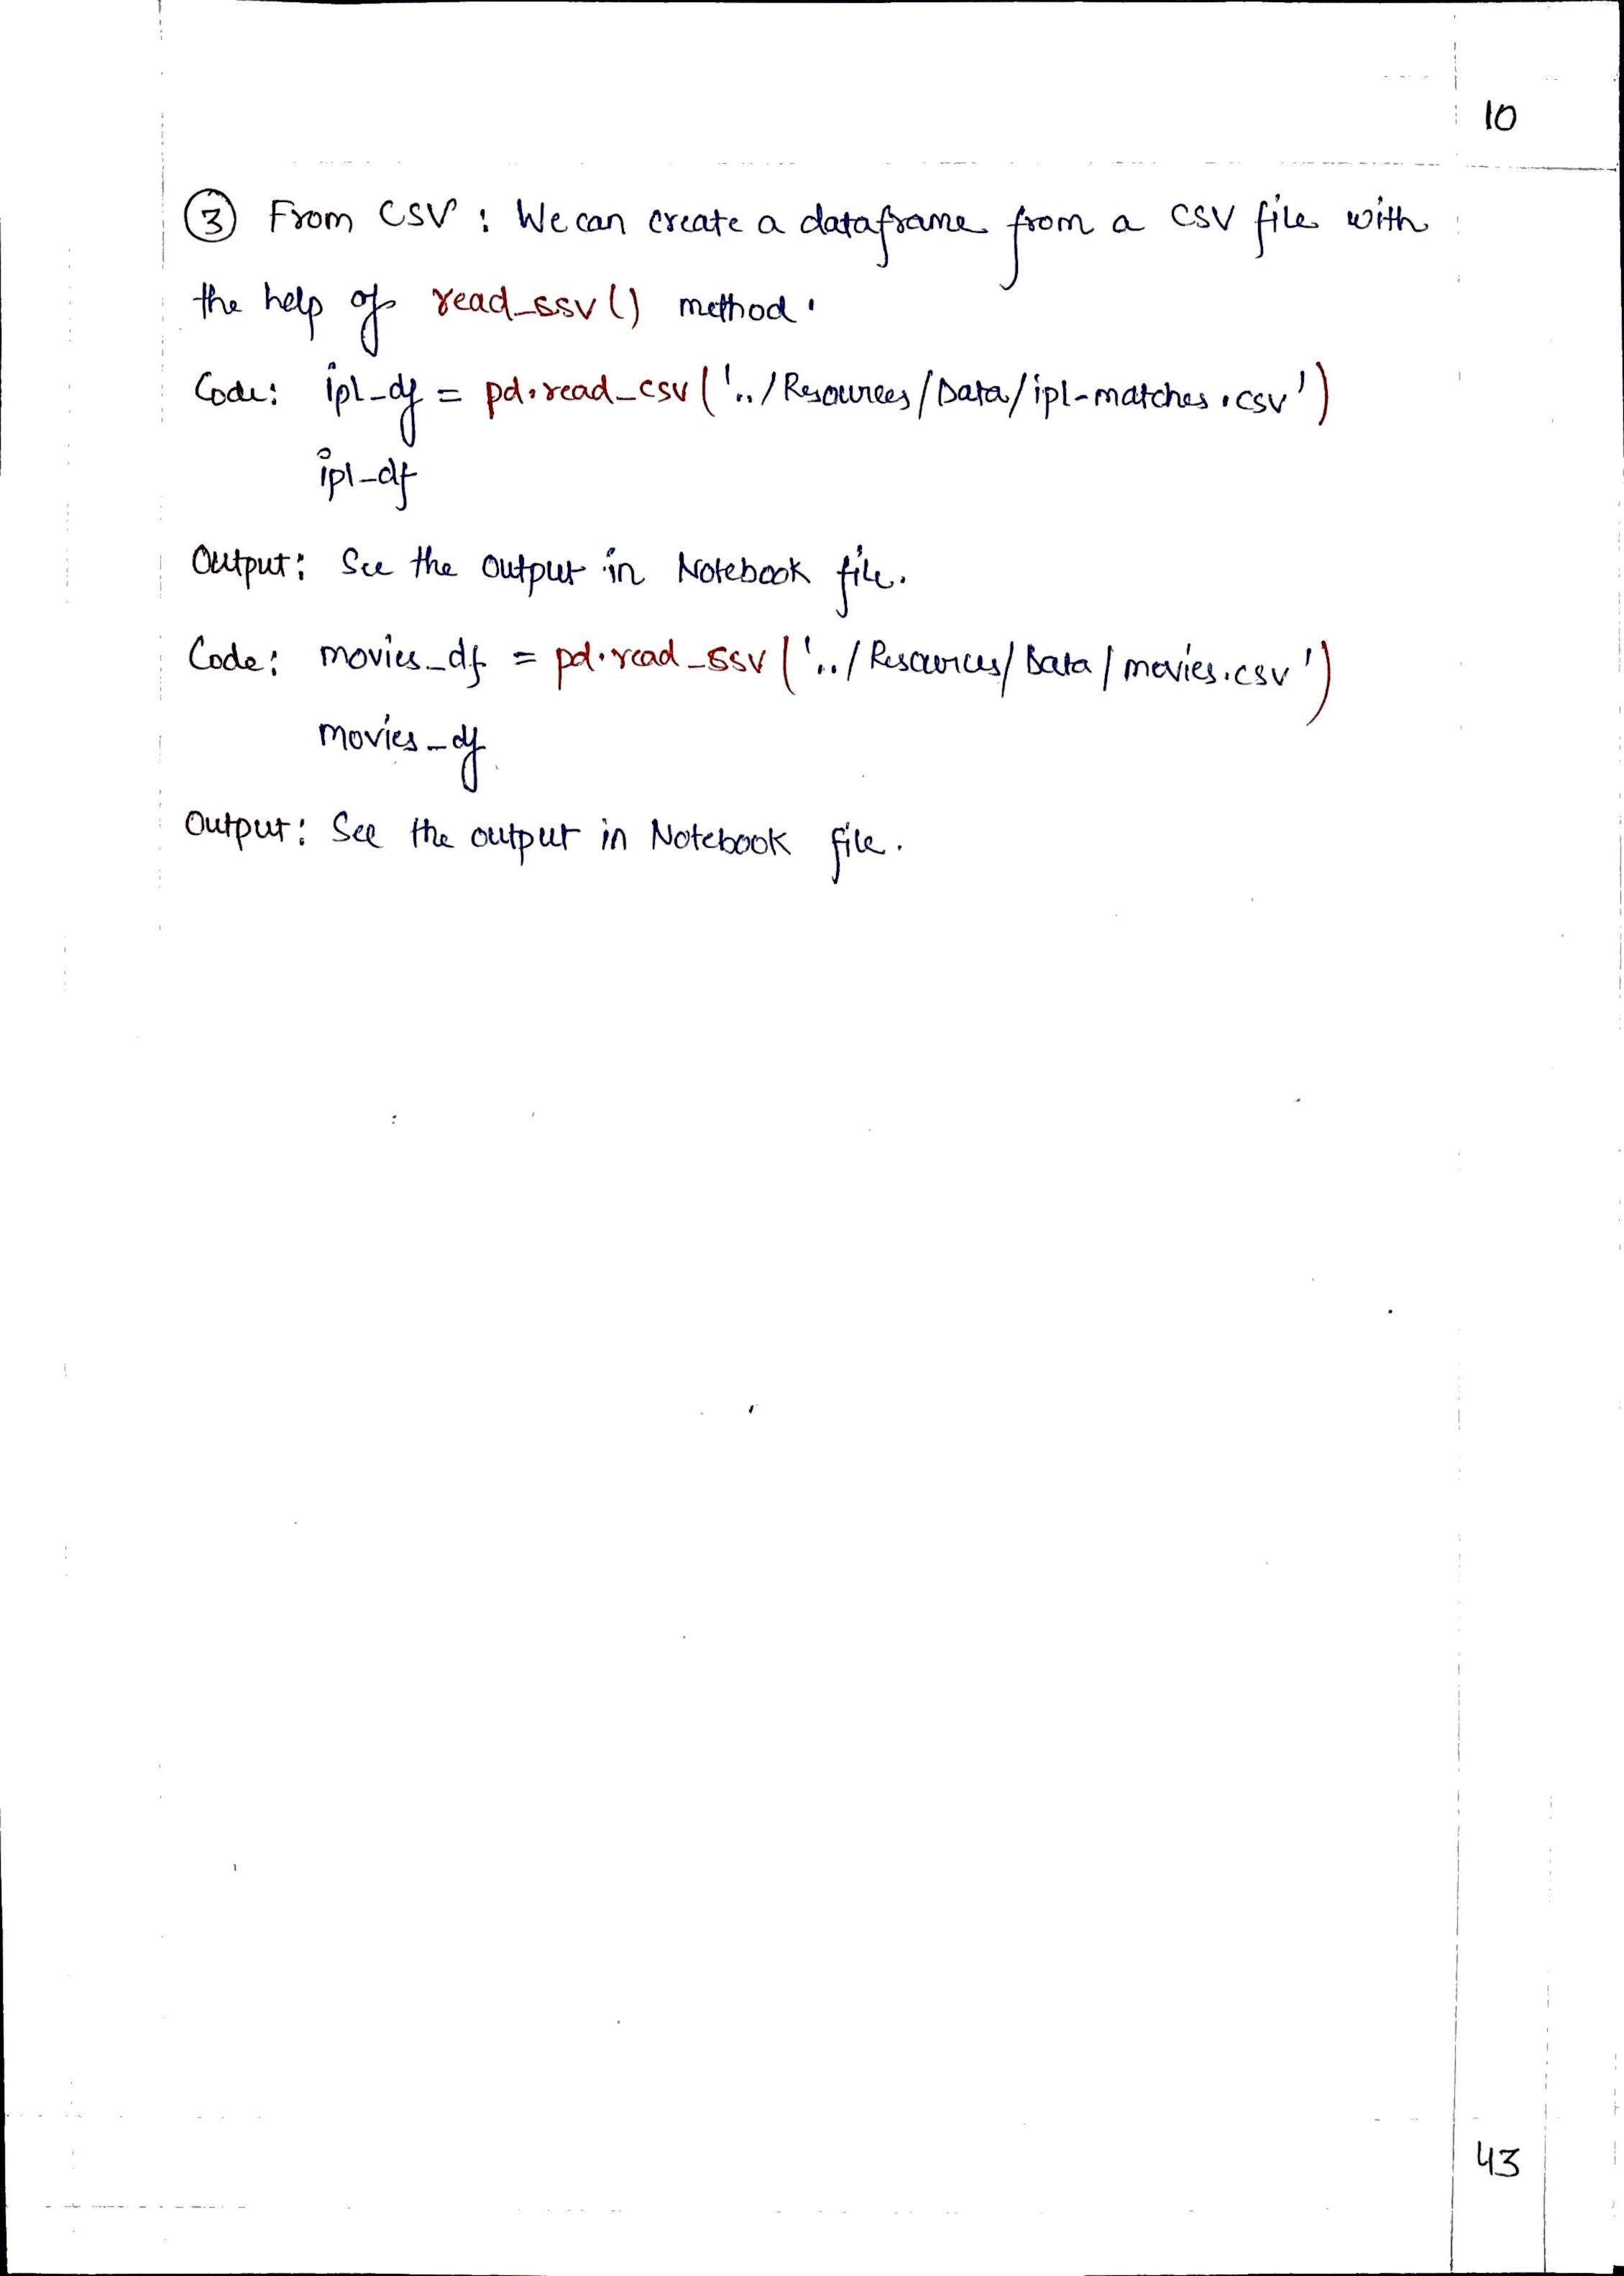 10
③ From CSV : We can create a dataframe from a CSV file with
the help of read_ssv() method.
Code: ipl_df = pd.read_csv('../Resources/Data/ipl-matches.csv')
ipl_df
Output: See the output in Notebook file.
Code: movies_df = pd.read_ssv('../Resources/Data/movies.csv')
movies_df
Output: See the output in Notebook file.
43